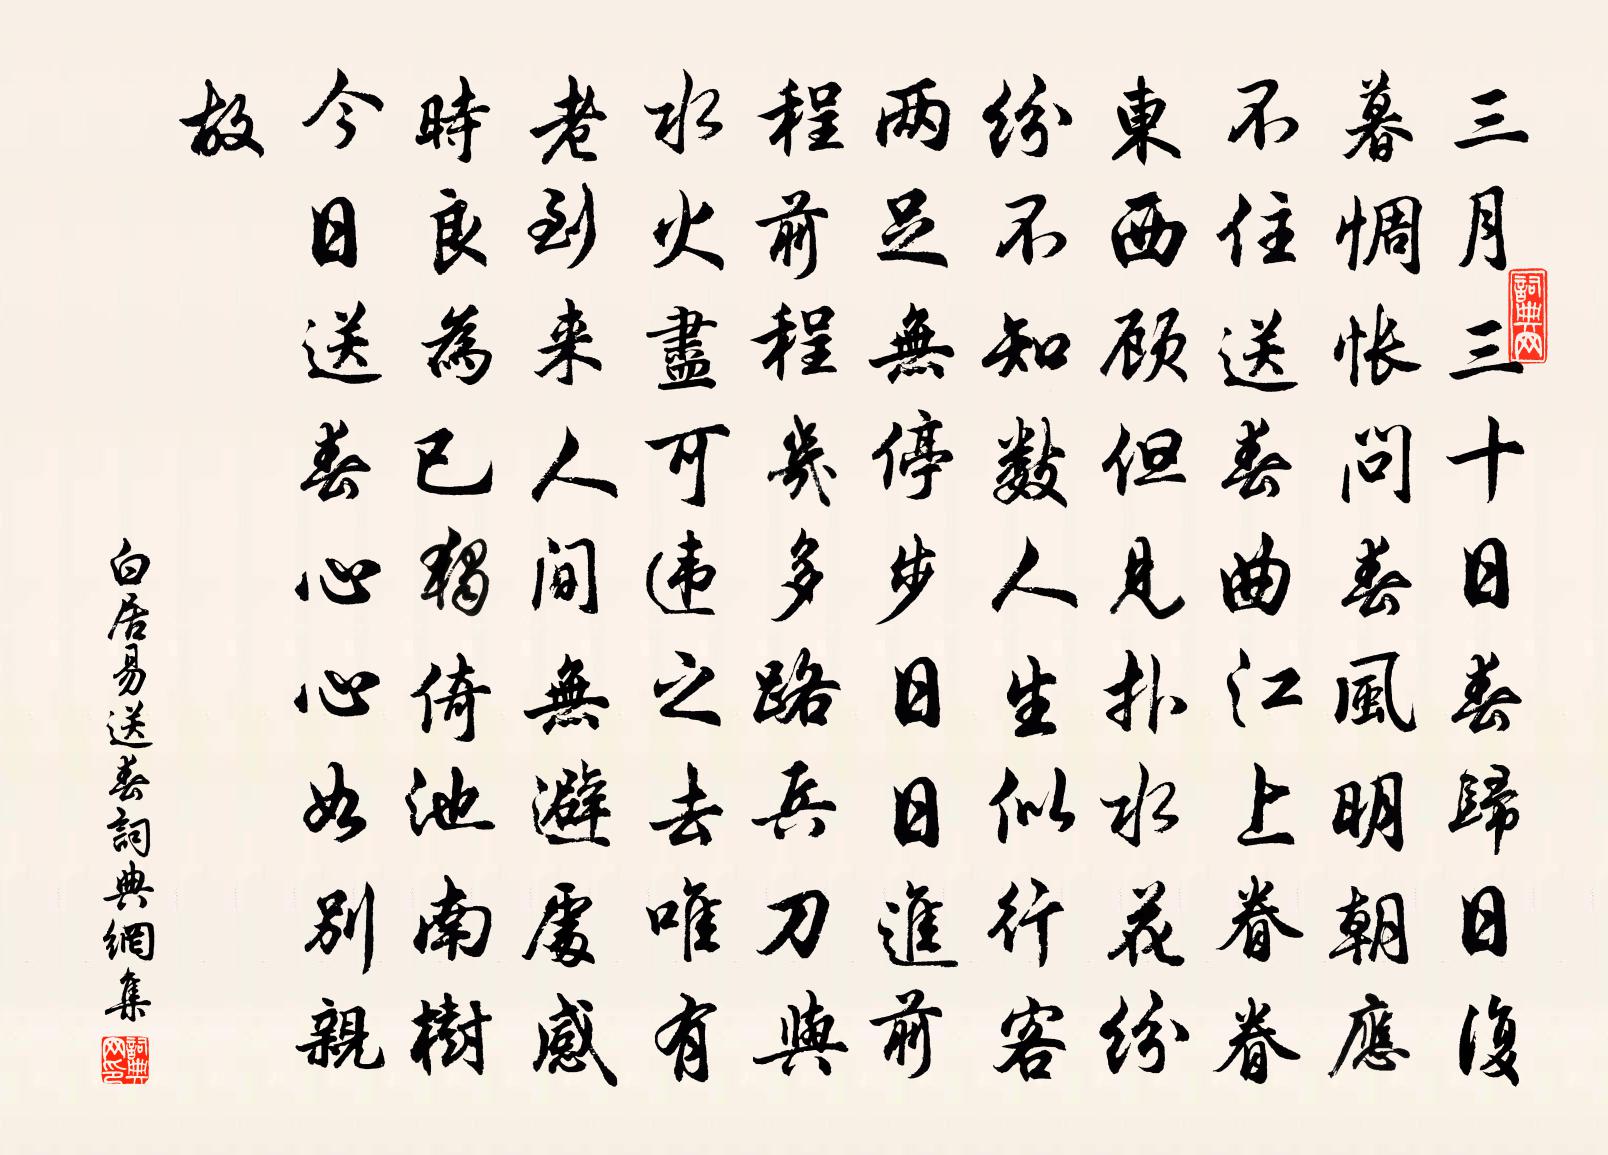 三月三十日春歸日復
暮惆怅問春風明朝應
不住送春曲江上眷眷
東西顾但見扑水花紛
紛不知數人生似行客
两足無停步日日進前
程前程幾多路兵刀與
水火盡可违之去唯有
老到来人间無避處感
時良為已獨倚池南樹
今日送春心心如别親
故
白居易送春詞典網集
詞典网
詞典网印